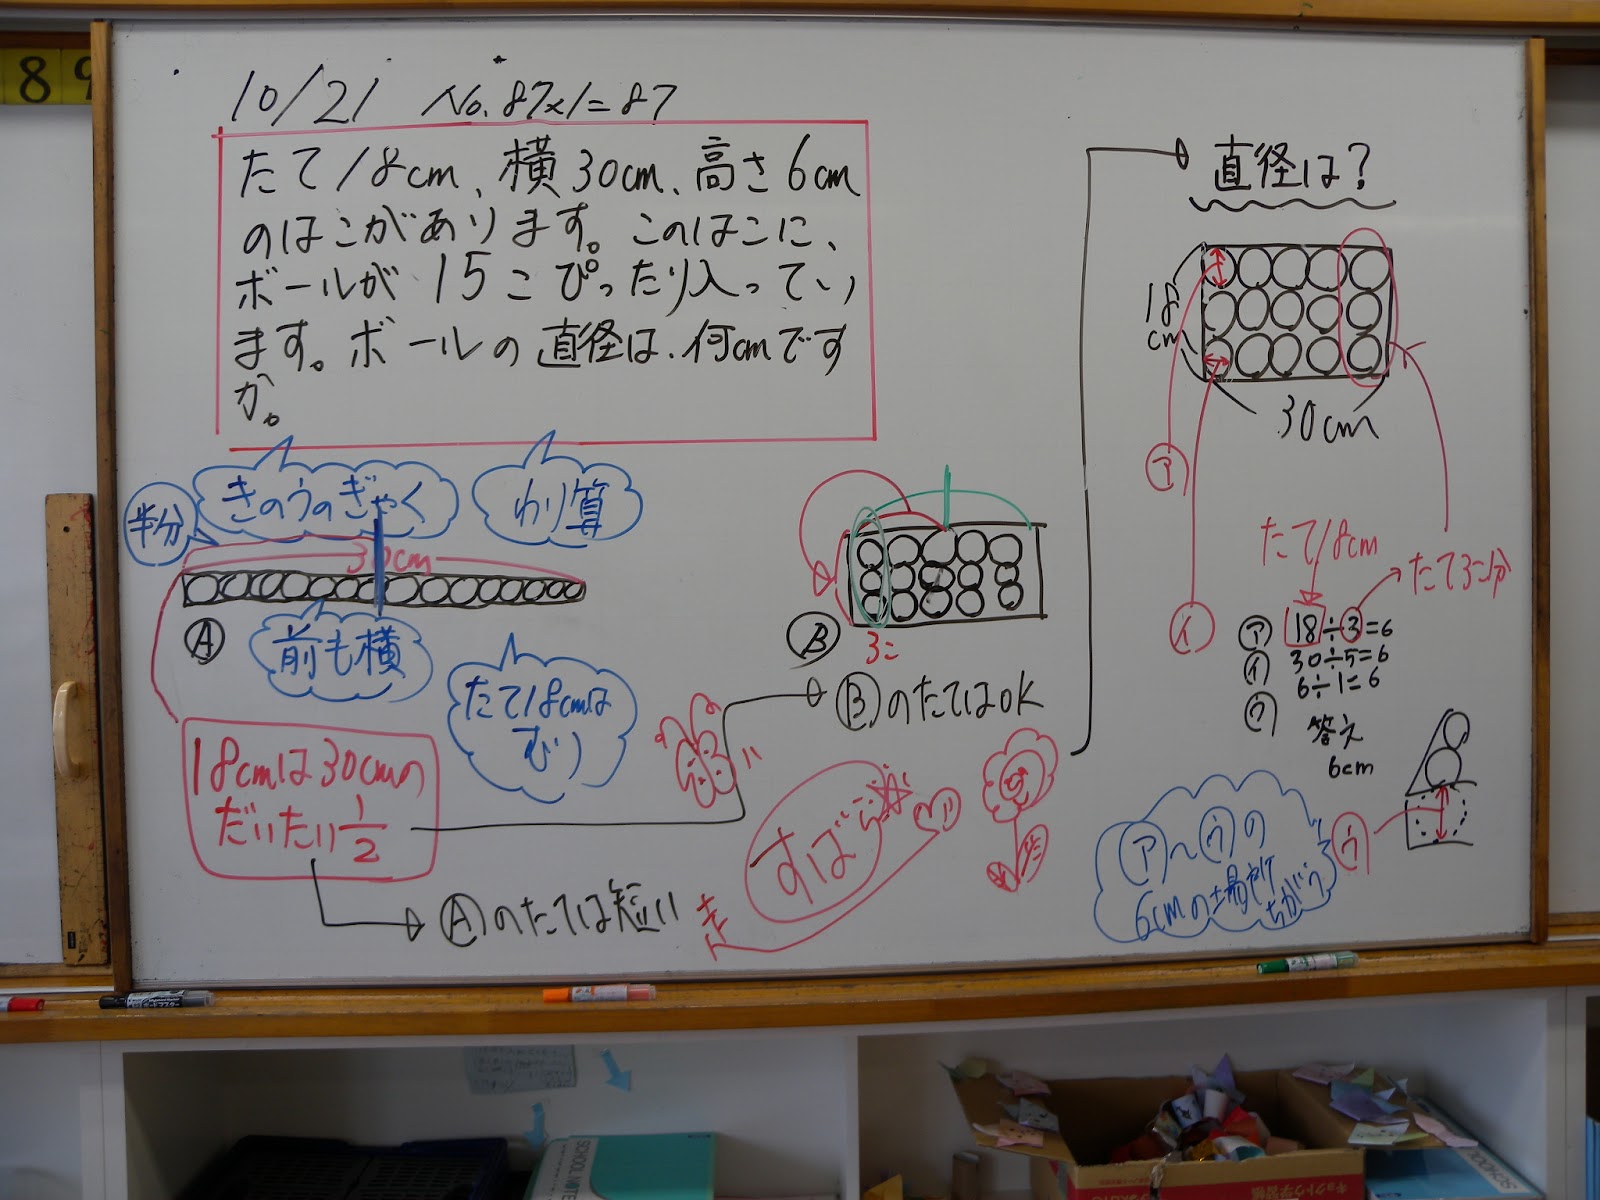 10/21 No.87×1=87
たて18cm、横30cm、高さ6cm
のはこがあります。このはこに、
ボールが15こぴったり入ってい
ます。ボールの直径は、何cmです
か。
半分
きのうのぎゃく
わり算
30cm
Ⓐ
前も横
たて18cmは
むり
18cmは30cmの
だいたい1/2
Ⓐのたては短い
3こ
Ⓑ
ⒷのたてはOK
すばらしい
直径は?
18
cm
30cm
㋐
㋑
たて18cm
たて3こ分
㋐ 18÷3=6
㋑ 30÷5=6
㋒ 6÷1=6
答え
6cm
㋒
㋐~㋒の
6cmの場所
ちがう
8 9
SCHOOL NOTE